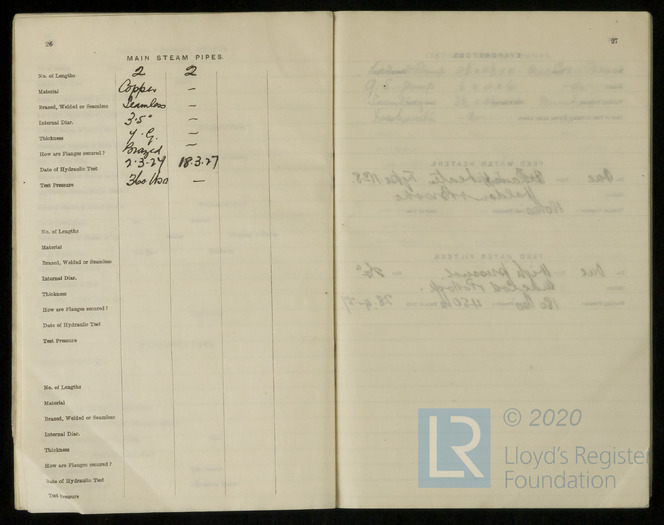 26
MAIN STEAM PIPES.
No. of Lengths 2 2
Material Copper –
Brazed, Welded or Seamless Seamless –
Internal Diar. 3.5" –
Thickness 4. G. –
How are Flanges secured? Brazed –
Date of Hydraulic Test 2.3.27 18.3.27
Test Pressure 360 lbs –
No. of Lengths
Material
Brazed, Welded or Seamless
Internal Diar.
Thickness
How are Flanges secured?
Date of Hydraulic Test
Test Pressure
No. of Lengths
Material
Brazed, Welded or Seamless
Internal Diar.
Thickness
How are Flanges secured?
Date of Hydraulic Test
Test Pressure
27
LR
© 2020
Lloyd's Register
Foundation